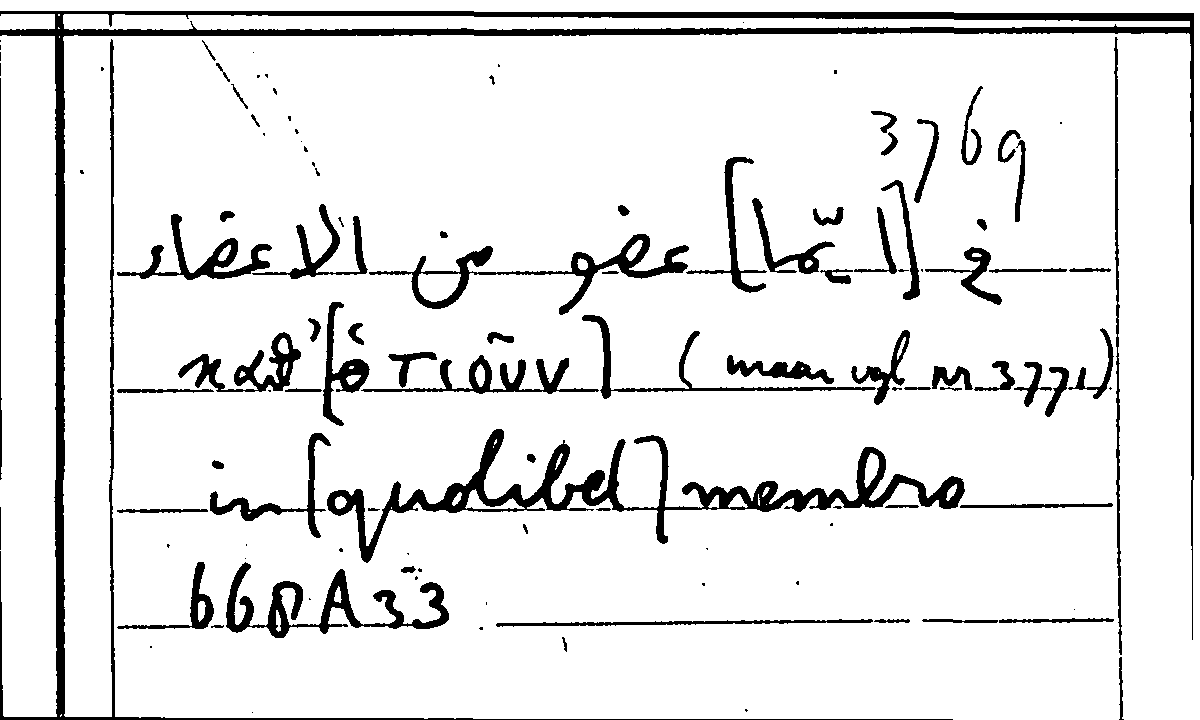 3769
في [ايّما] عضو من الاعضاء
καθ' [ὁτιοῦν] (maar vgl nr 3771)
in [quolibet] membro
668A33